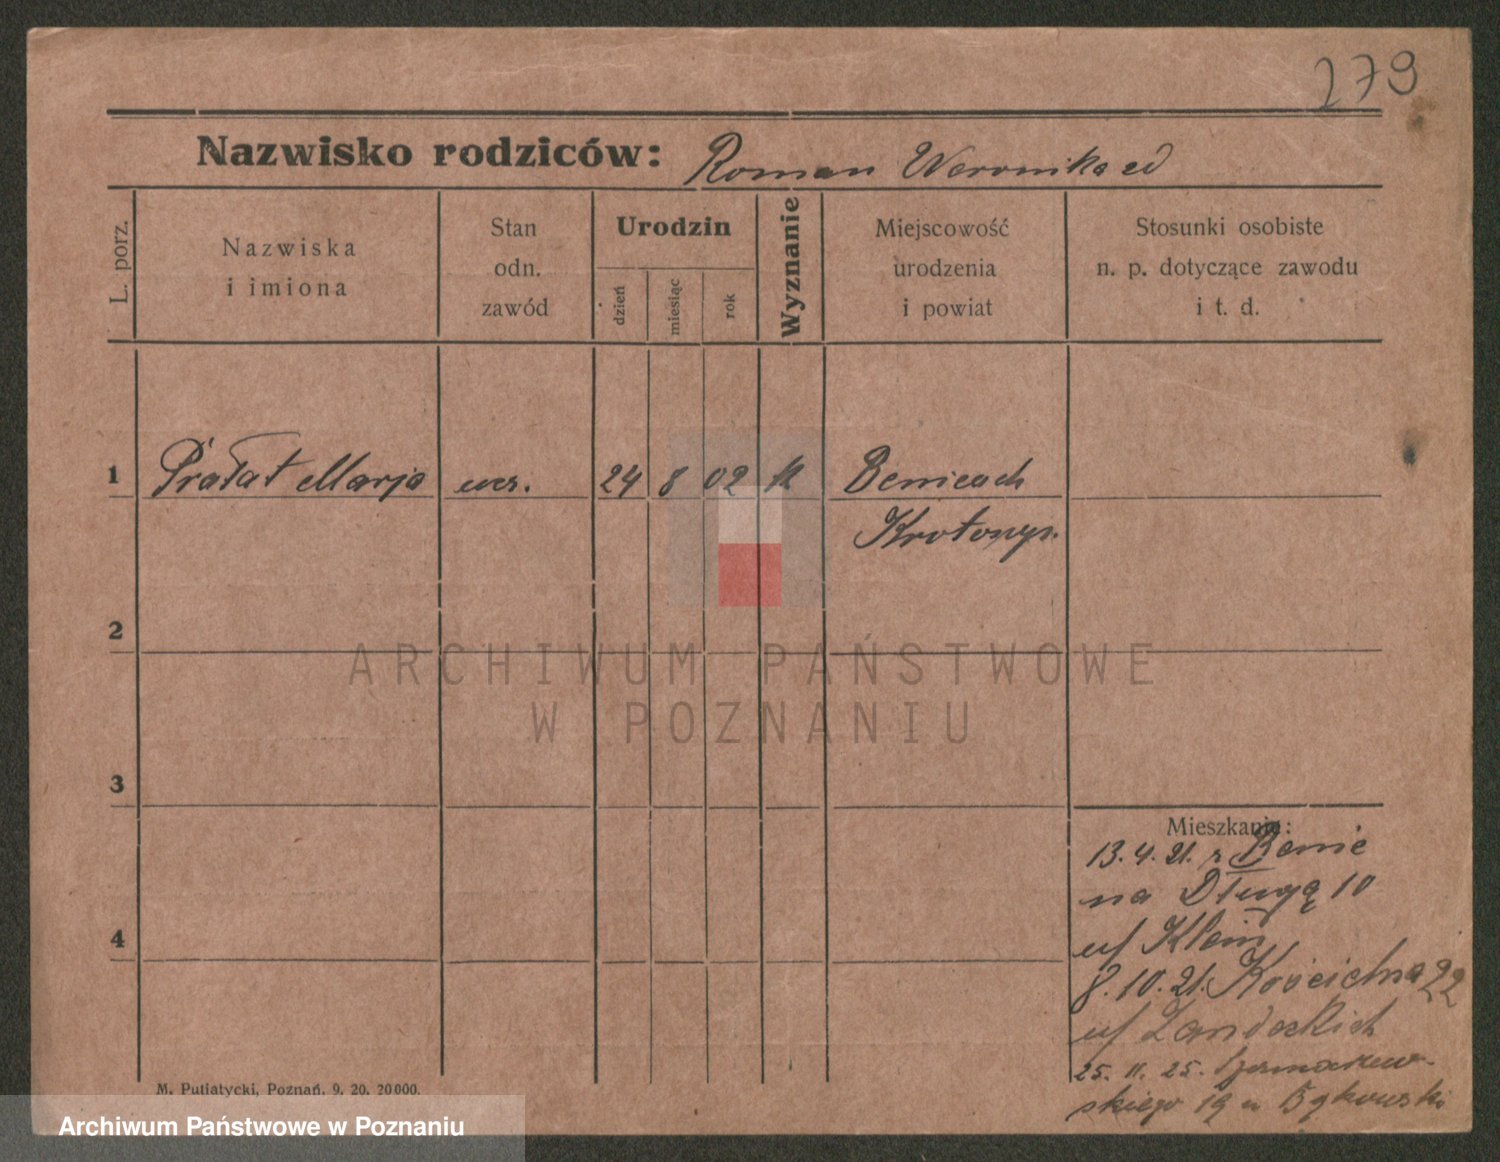 279
Nazwisko rodziców: Roman Weronika
L. porz.
Nazwiska
i imiona
Stan
odn.
zawód
Urodzin
dzień
miesiąc
rok
Wyznanie
Miejscowość
urodzenia
i powiat
Stosunki osobiste
n. p. dotyczące zawodu
i t. d.
1 Prałat Marja 24 8 02 k Benicach
Krotoszyn.
2
ARCHIWUM PAŃSTWOWE
W POZNANIU
3
Mieszkanie:
13. 4. 21. z Benic
na Długą 10
4
u/ Klein
8. 10. 21. Kościelna 22
u/
25. 11. 25.
skiego 19 u Bykowski
M. Putiatycki, Poznań. 9. 20. 20000.
Archiwum Państwowe w Poznaniu